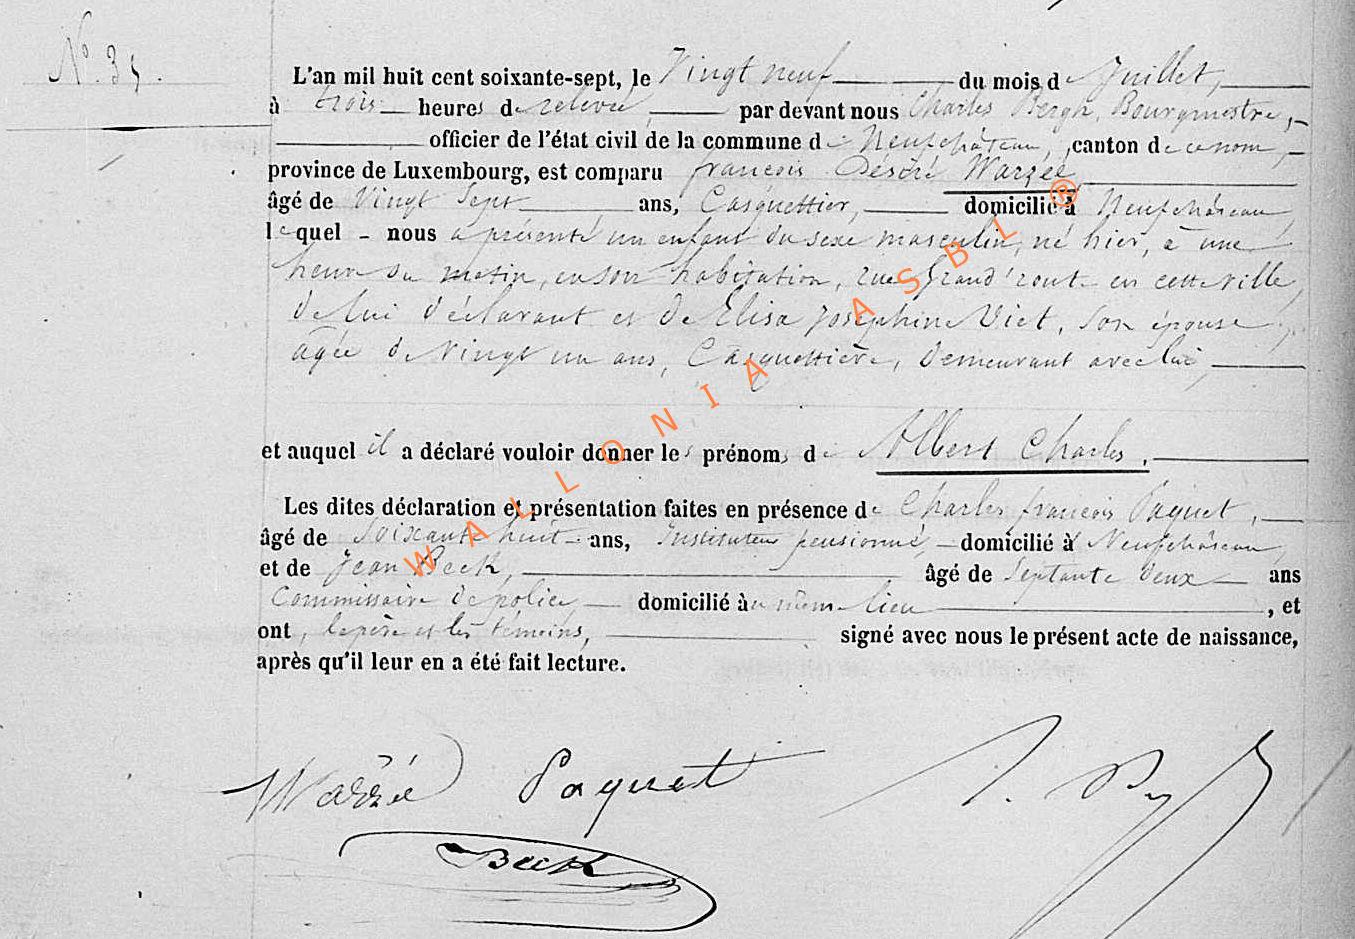 N° 35.
L'an mil huit cent soixante-sept, le Vingt neuf du mois de Juillet,
à trois heures de relevée, par devant nous Charles Bergh, Bourgmestre,
officier de l'état civil de la commune de Neufchâteau, canton de ce nom,
province de Luxembourg, est comparu françois Désiré Warzée,
âgé de Vingt Sept ans, Casquettier, domicilié à Neufchâteau,
lequel nous a présenté un enfant du sexe masculin, né hier, à une
heure du matin, en son habitation, rue Grand'route en cette ville,
de lui déclarant et de Elisa Joséphine Viet, son épouse,
agée de vingt un ans, Casquettière, demeurant avec lui,
et auquel il a déclaré vouloir donner les prénoms de Albert Charles.
Les dites déclaration et présentation faites en présence de Charles françois Paquet,
âgé de Soixante huit ans, Instituteur pensionné, domicilié à Neufchâteau,
et de Jean Beck, âgé de Septante deux ans
Commissaire de police, domicilié au même lieu, et
ont, le père et les témoins, signé avec nous le présent acte de naissance,
après qu'il leur en a été fait lecture.
Warzée Paquet
Beck
WALLONIA ASBL ®